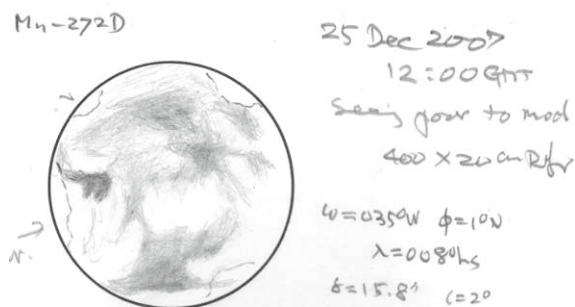 Mn-272D
25 Dec 2007
12:00 GMT
Seeing poor to mod
400 × 20 cm Rfr
ω=035°W φ=1°N
λ=008°Ls
δ=15.8" i=2°
N.